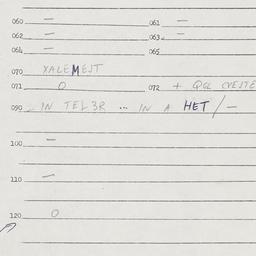 060 — 061 —
062 — 063. —
064 — 065
070 XALEMEJT
071 0 072 + QGE
090 IN TEL3R ... IN A HET/—
100 —
110 —
120 0